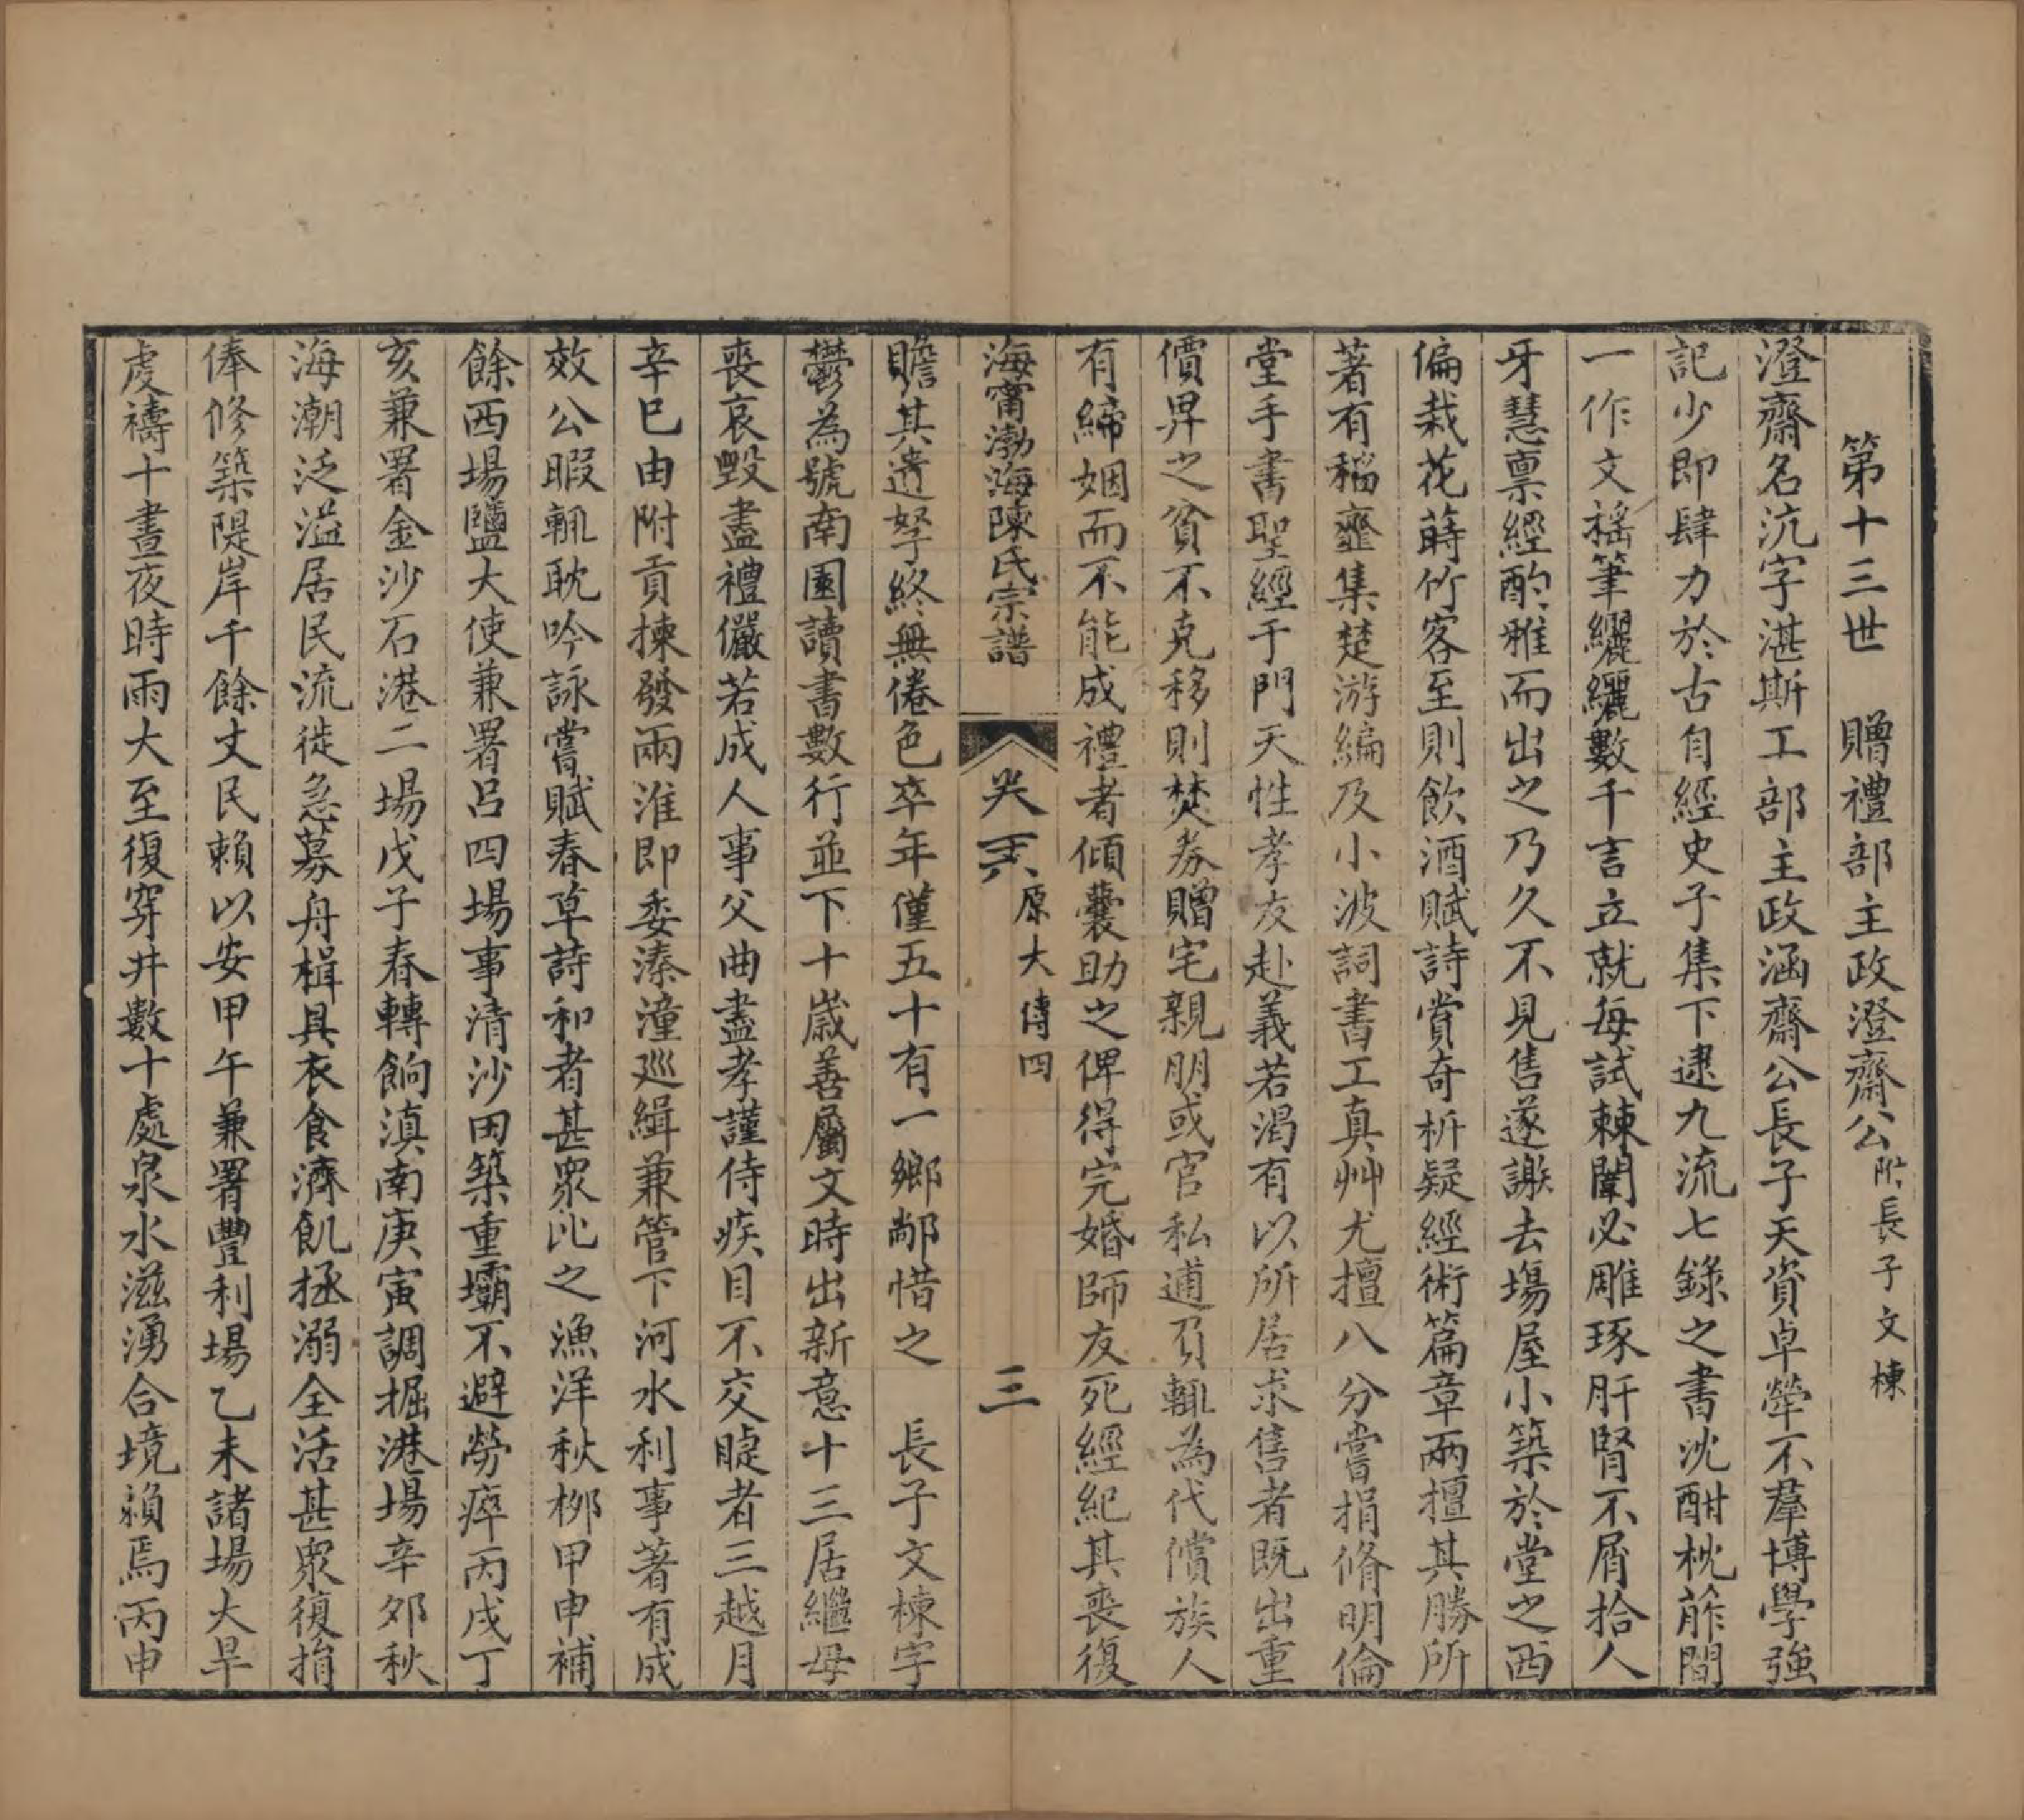 第十三世　贈禮部主政澄齋公附長子文棟
澄齋名沆字湛斯工部主政涵齋公長子天資卓犖不羣博學強
記少即肆力於古自經史子集下逮九流七錄之書沈酣枕葄閒
一作文搖筆纚纚數千言立就每試棘闈必雕琢肝腎不屑拾人
牙慧禀經酌雅而出之乃久不見售遂謝去場屋小築於堂之西
偏栽花蒔竹客至則飲酒賦詩賞奇析疑經術篇章兩擅其勝所
著有稲齏集楚游編及小波詞書工真艸尤擅八分嘗捐脩明倫
堂手書聖經于門天性孝友赴義若渴有以所居求售者既出重
價昇之貧不克移則焚券贈宅親朋或官私逋負輒為代償族人
有締姻而不能成禮者傾囊助之俾得完婚師友死經紀其喪復
海甯渤海陳氏宗譜
原大傳四
三
贍其遺孥終無倦色卒年僅五十有一鄉鄰惜之　長子文棟字
鬱為號南園讀書數行並下十歲善屬文時出新意十三居繼母
喪哀毀盡禮儼若成人事父曲盡孝謹侍疾目不交睫者三越月
辛巳由附貢揀發兩淮即委溱潼巡緝兼管下河水利事著有成
效公暇輒耽吟詠嘗賦春草詩和者甚衆比之漁洋秋柳甲申補
餘西場鹽大使兼署呂四場事清沙田築重壩不避勞瘁丙戌丁
亥兼署金沙石港二場戊子春轉餉滇南庚寅調掘港場辛夘秋
海潮泛溢居民流徙急募舟楫具衣食濟飢拯溺全活甚衆復捐
俸修築隄岸千餘丈民賴以安甲午兼署豐利場乙未諸場大旱
虔禱十晝夜時雨大至復穿井數十處泉水滋湧合境賴焉丙申